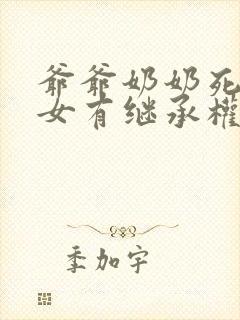 爷爷奶奶死
女有继承權
季加宇